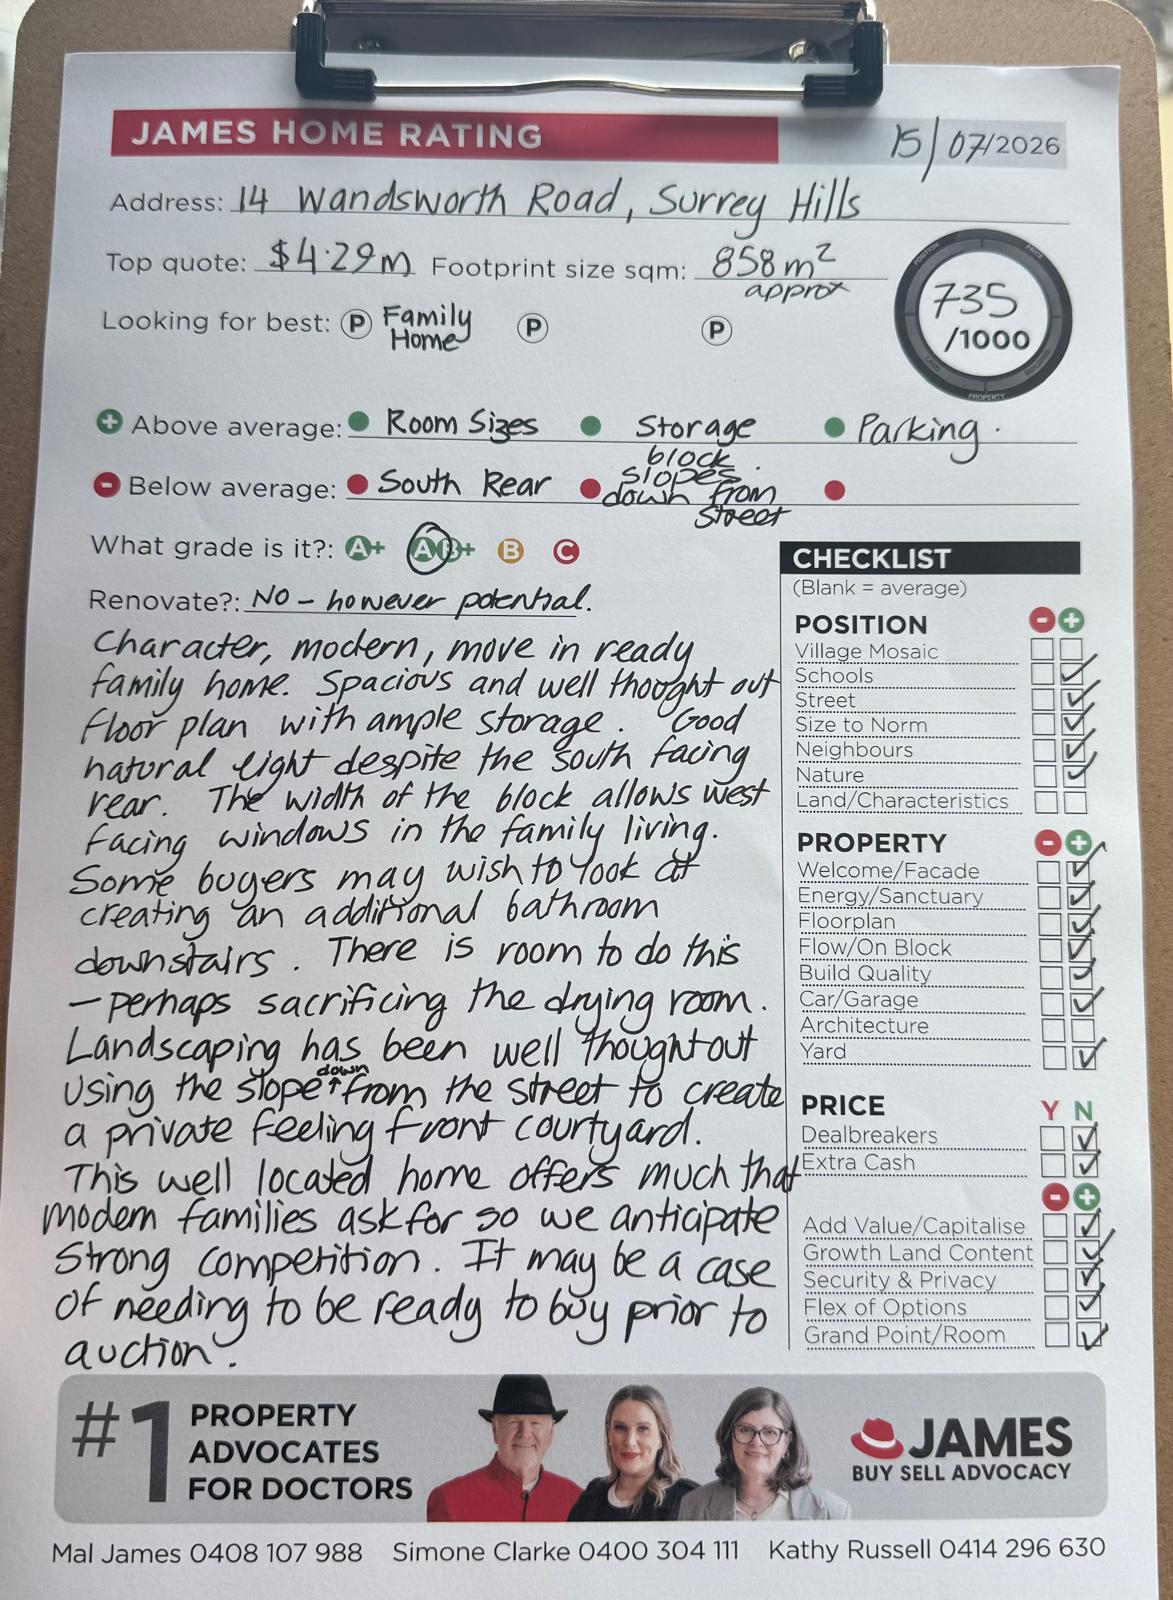 JAMES HOME RATING
15/07/2026
Address: 14 Wandsworth Road, Surrey Hills
Top quote: $4.29m Footprint size sqm: 858m² approx
Looking for best: P Family Home P P
735 /1000
POSITION
PRICE
LAND
BUILDING
PROPERTY
Above average: Room Sizes Storage Parking.
Below average: South Rear block slopes down from street
What grade is it?: A+ A B+ B C
Renovate?: No - however potential.
Character, modern, move in ready
family home. Spacious and well thought out
floor plan with ample storage. Good
natural light despite the south facing
rear. The width of the block allows west
facing windows in the family living.
Some buyers may wish to look at
creating an additional bathroom
downstairs. There is room to do this
- perhaps sacrificing the drying room.
Landscaping has been well thought out
using the slope down from the street to create
a private feeling front courtyard.
This well located home offers much that
modern families ask for so we anticipate
strong competition. It may be a case
of needing to be ready to buy prior to
auction.
CHECKLIST
(Blank = average)
POSITION - +
Village Mosaic
Schools
Street
Size to Norm
Neighbours
Nature
Land/Characteristics
PROPERTY - +
Welcome/Facade
Energy/Sanctuary
Floorplan
Flow/On Block
Build Quality
Car/Garage
Architecture
Yard
PRICE Y N
Dealbreakers
Extra Cash
- +
Add Value/Capitalise
Growth Land Content
Security & Privacy
Flex of Options
Grand Point/Room
#1 PROPERTY
ADVOCATES
FOR DOCTORS
JAMES
BUY SELL ADVOCACY
Mal James 0408 107 988 Simone Clarke 0400 304 111 Kathy Russell 0414 296 630